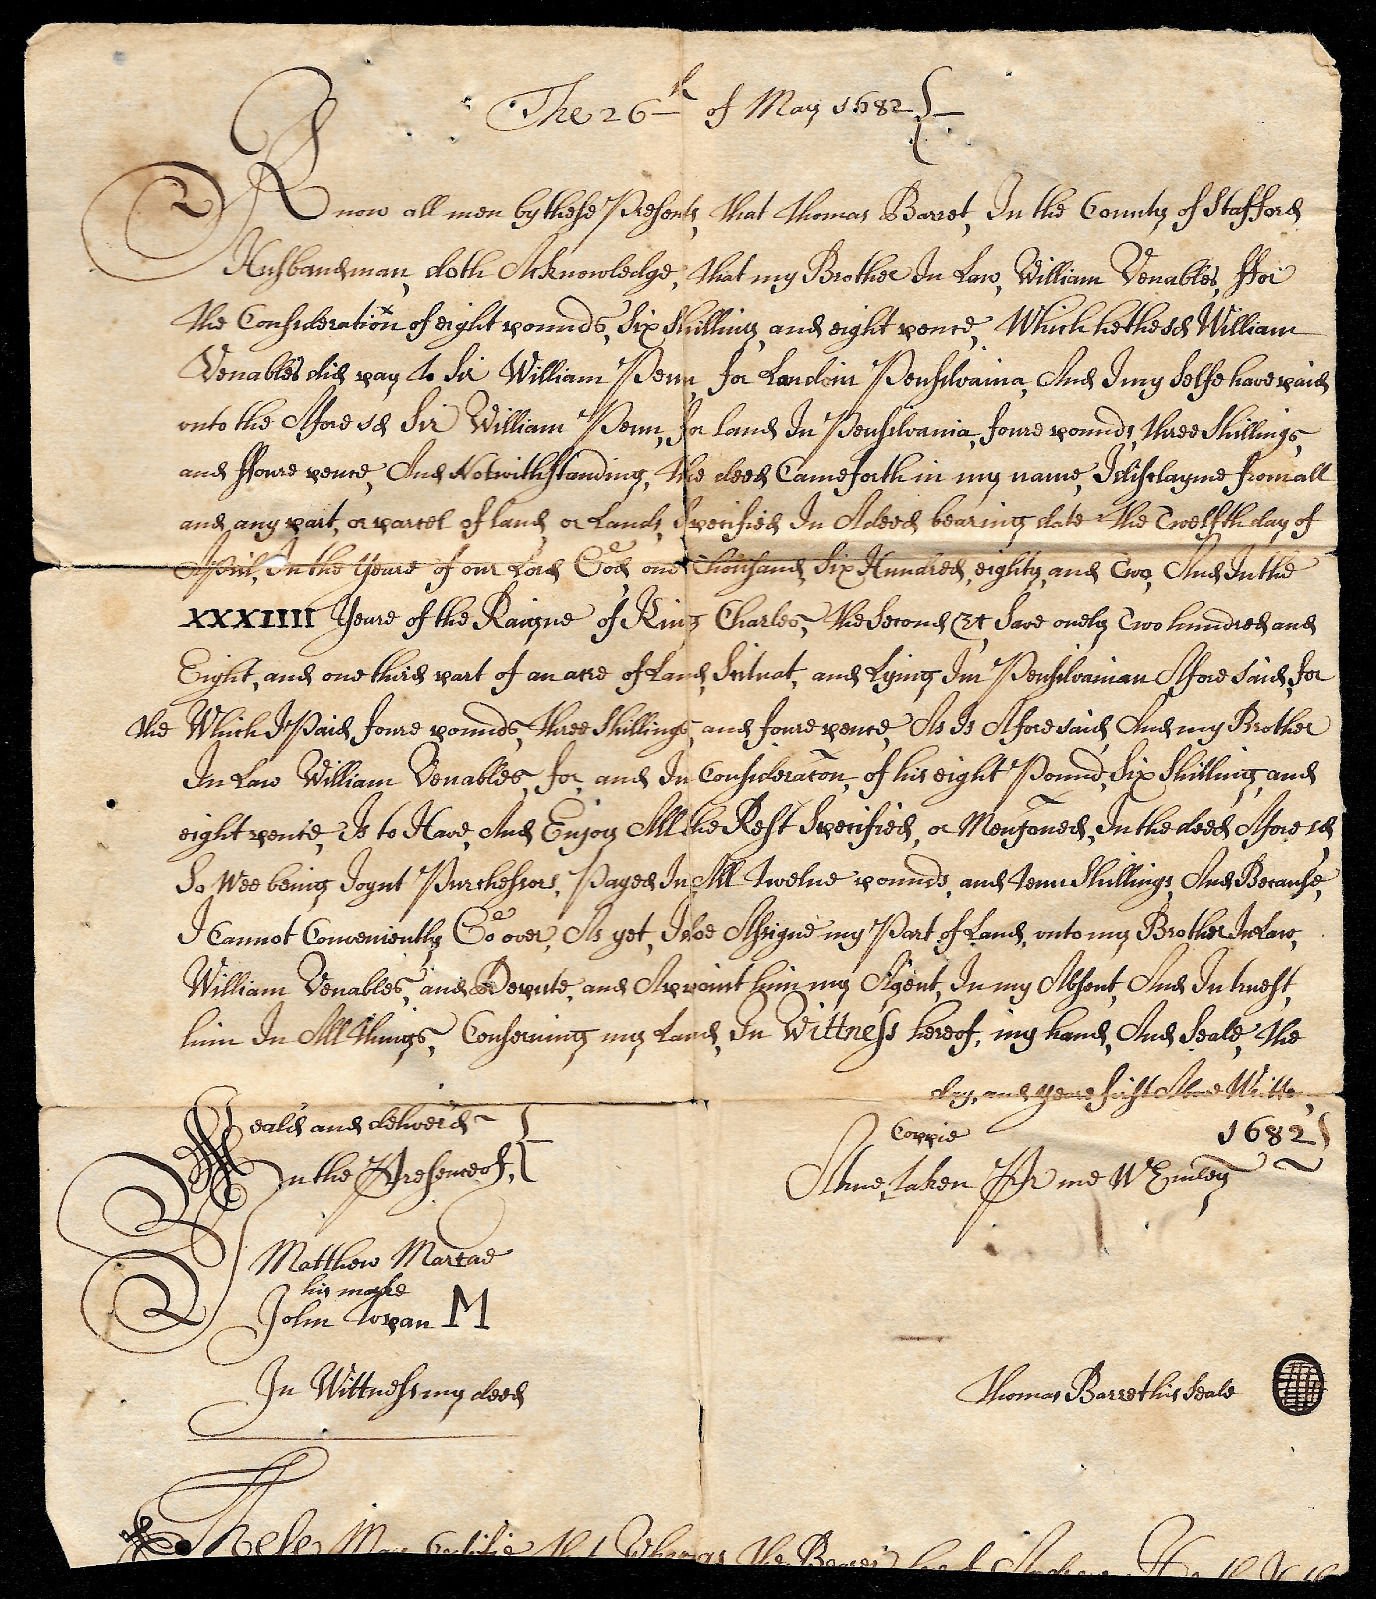 The 26th of May 1682
Know all men by these Presents, that Thomas Barret, In the County of Stafford
Husbandman, doth Acknowledge, that my Brother In Law, William Venables, ffor
the Consideration of eight pounds, six shilling, and eight pence, Which he the sd William
Venables did pay to Sir William Penn, for Land in Pensilvaina, And I my Selfe have paid
onto the Afore sd Sir William Penn, for land In Pensilvania, foure pounds, three Shillings,
and ffoure pence, And Notwithstanding, the deed Came forth in my name, I disclayme from all
and, any part, or parcel of land, or Lands, Specified In A deed bearing date the Twelfth day of
Apīīl, In the Yeare of our Lord God, one Thousand, Six Hundred, eighty, and Two, And In the
XXXIIII Yeare of the Raigne of King Charles, the Second &c, Save onely Two hundred and
Eight, and one third part of an acre of Land, Scituat, and Lying In Pensilvainian Afore said, for
the Which I Paid foure pounds, three Shillings, and foure pence, As Is Afore said, And my Brother
In Law William Venables, for, and In Consideraton, of his eight Pound, Six Shilling, and
eight pence, Is to Have, And Enjoy All the Rest Specified, or Menconed, In the deed Afore sd,
So Wee being Joynt Purchessors, Payed In All Twelve pounds, and tenn Shillings, And Because,
I Cannot Conveniently Go over, As yet, I doe Assigne my Part of Land, onto my Brother In Law,
William Venables, and Depute, and Apoint him my Agent, In my Absent, And In trust,
him In All things, Conserning my Land, In Wittness hereof, my hand, And Seale, the
day, and yeare first Above Writte,
1682
Seal'd and deliver'd
In the Presence of,
Coppie
A true, taken Pr me W Emley
Matthew Marcad
his marke
John Topan M
In Wittness my deed
Thomas Barret his Seale
These May Certifie that Whereas the Bearer